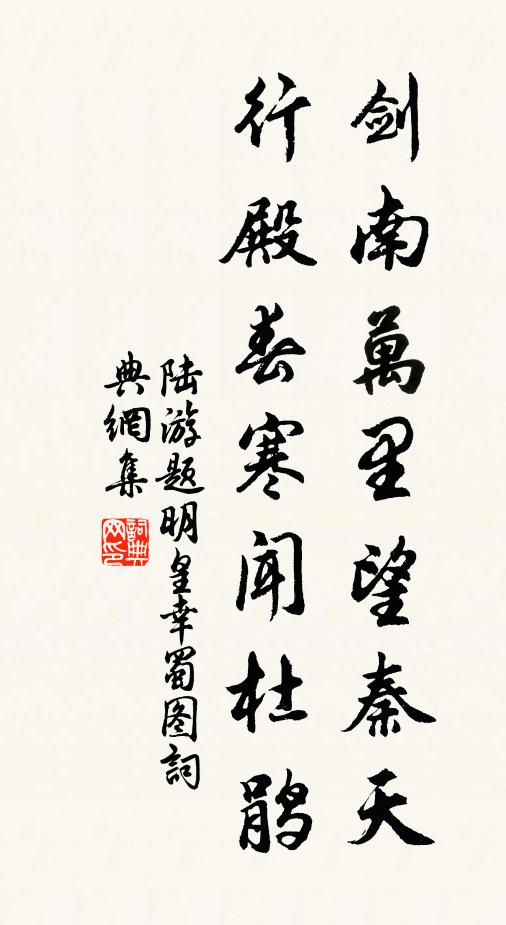 剑南萬里望秦天
行殿春寒闻杜鹃
陆游题明皇幸蜀图詞
典網集
詞典
网印